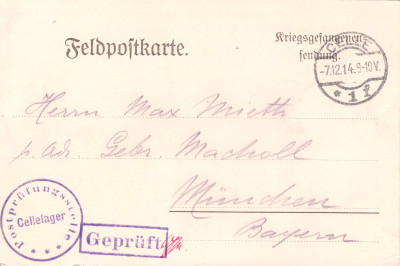 Feldpostkarte.
Kriegsgefangenen
sendung.
CELLE
-7.12.14.9-10V.
* 1 f
Herrn Max Mieth
p. Adr. Gebr. Macholl
München
Bayern
Postprüfungsstelle
Cellelager
* * *
Geprüft